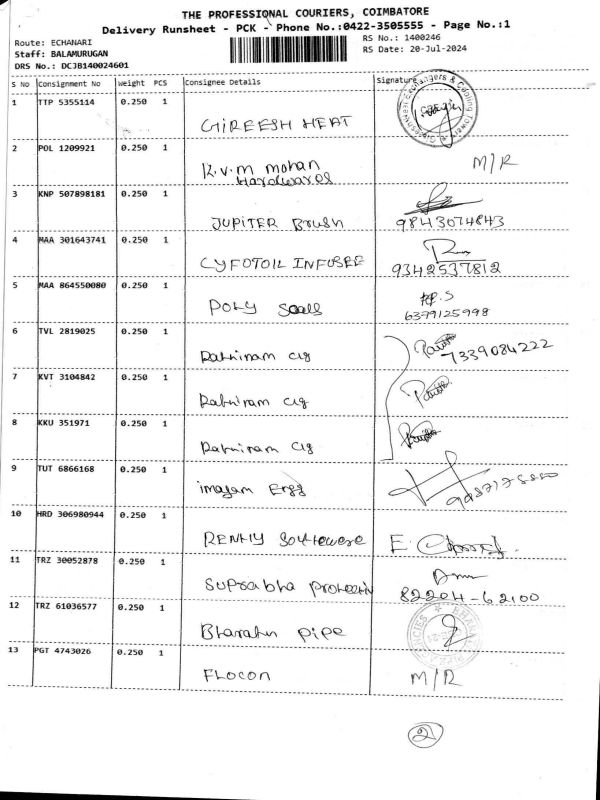 THE PROFESSIONAL COURIERS, COIMBATORE
Delivery Runsheet - PCK - Phone No.:0422-3505555 - Page No.:1
Route: ECHANARI RS No.: 1400246
Staff: BALAMURUGAN RS Date: 20-Jul-2024
DRS No.: DCJB140024601
S No Consignment No Weight PCS Consignee Details Signature
1 TTP 5355114 0.250 1
GIREESH HEAT
2 POL 1209921 0.250 1
K.V.M mohan M/R
Hardwares
3 KNP 507898181 0.250 1
JUPITER Brush 9843074843
4 MAA 301643741 0.250 1
CYFOTOIL INFUSEE 9342537812
5 MAA 864550080 0.250 1
POLY Seals 6379125998
6 TVL 2819025 0.250 1
Ratniram 7339084222
7 KVT 3104842 0.250 1
Ratniram
8 KKU 351971 0.250 1
Ratniram
9 TUT 6866168 0.250 1
imayam Engg
10 HRD 306980944 0.250 1
RENLIY
11 TRZ 30052878 0.250 1
Suprabha 82204-62100
12 TRZ 61036577 0.250 1
Bharath pipe
13 PGT 4743026 0.250 1
FLOCON M/R
2